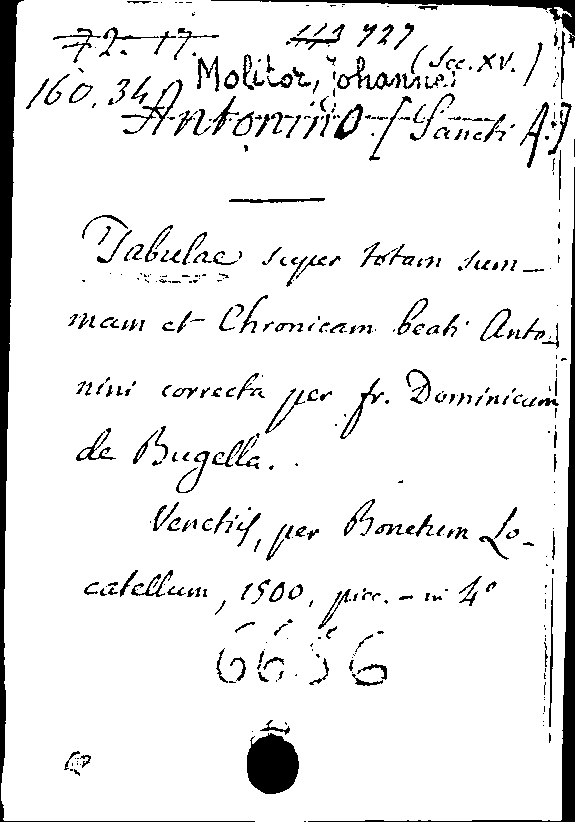 72. 17. 443 727
Molitor, Johannes (Sec. XV.)
160.34
Antonino [Sancti A.]
Tabulae super totam sum-
mam et Chronicam beati Anto-
nini correcta per fr. Dominicum
de Bugella.
Venetiis, per Bonetum Lo-
catellum, 1500, picc. - in 4°
6656